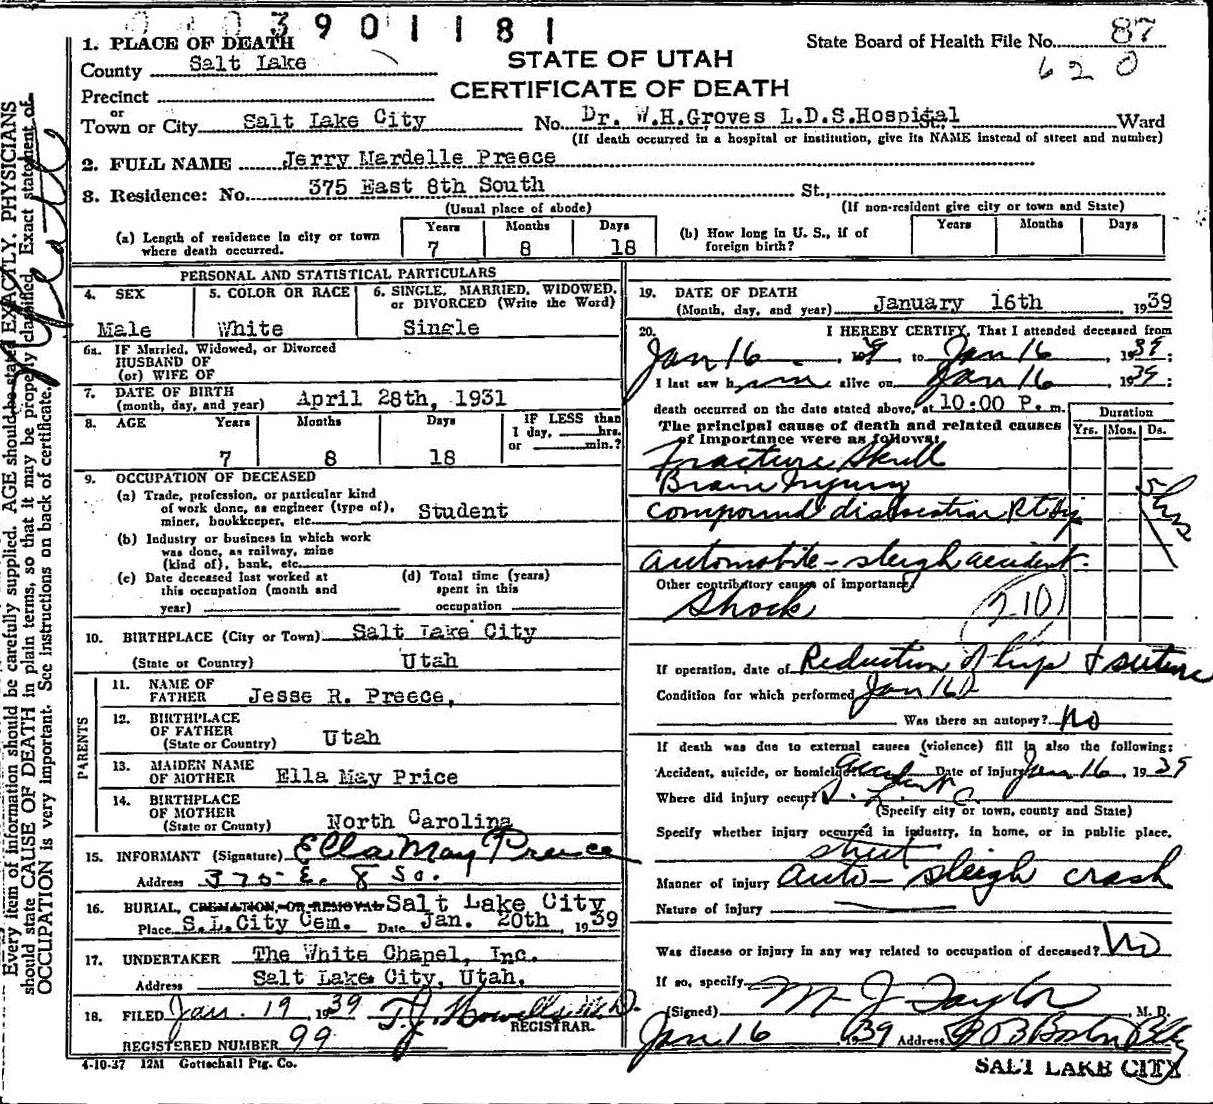 3901181
State Board of Health File No. 87
620
STATE OF UTAH
CERTIFICATE OF DEATH
1. PLACE OF DEATH
County Salt Lake
Precinct
or
Town or City Salt Lake City No. Dr. W.H.Groves L.D.S.Hospital St., Ward
(If death occurred in a hospital or institution, give its NAME instead of street and number)
2. FULL NAME Jerry Mardelle Preece
3. Residence: No. 375 East 8th South St.,
(Usual place of abode) (If non-resident give city or town and State)
(a) Length of residence in city or town where death occurred. Years 7 Months 8 Days 18
(b) How long in U. S., if of foreign birth? Years Months Days
PERSONAL AND STATISTICAL PARTICULARS
4. SEX Male
5. COLOR OR RACE White
6. SINGLE, MARRIED, WIDOWED, or DIVORCED (Write the Word) Single
6a. IF Married, Widowed, or Divorced
HUSBAND OF
(or) WIFE OF
7. DATE OF BIRTH
(month, day, and year) April 28th, 1931
8. AGE Years 7 Months 8 Days 18 IF LESS than 1 day, hrs. or min.?
9. OCCUPATION OF DECEASED
(a) Trade, profession, or particular kind
of work done, as engineer (type of),
miner, bookkeeper, etc. Student
(b) Industry or business in which work
was done, as railway, mine
(kind of), bank, etc.
(c) Date deceased last worked at
this occupation (month and
year)
(d) Total time (years)
spent in this
occupation
10. BIRTHPLACE (City or Town) Salt Lake City
(State or Country) Utah
PARENTS
11. NAME OF FATHER Jesse R. Preece,
12. BIRTHPLACE OF FATHER
(State or Country) Utah
13. MAIDEN NAME OF MOTHER Ella May Price
14. BIRTHPLACE OF MOTHER
(State or Country) North Carolina
15. INFORMANT (Signature) Ella May Preece
Address 375 E. 8 So.
16. BURIAL, CREMATION, OR REMOVAL Salt Lake City
Place S.L.City Cem. Date Jan. 20th, 1939
17. UNDERTAKER The White Chapel, Inc.
Address Salt Lake City, Utah.
18. FILED Jan. 19, 1939 T. J. Howells M.D.
REGISTRAR.
REGISTERED NUMBER 99
4-10-37 12M Gottschall Ptg. Co.
19. DATE OF DEATH
(Month, day, and year) January 16th 1939
20. I HEREBY CERTIFY, That I attended deceased from
Jan 16, 1939, to Jan 16, 1939;
I last saw him alive on Jan 16, 1939
death occurred on the date stated above, at 10:00 P. m.
The principal cause of death and related causes
of importance were as follows:
Duration
Yrs. Mos. Ds.
Fracture Skull
Brain Injury 5 hrs
compound dislocation Rt Hip
automobile - sleigh accident.
Other contributory causes of importance
Shock
(210)
If operation, date of Reduction of hip & suture
Condition for which performed Jan 16
Was there an autopsy? No
If death was due to external causes (violence) fill in also the following:
Accident, suicide, or homicide? Accident Date of injury Jan 16, 1939
Where did injury occur? S. L. C.
(Specify city or town, county and State)
Specify whether injury occurred in industry, in home, or in public place.
street
Manner of injury auto- sleigh crash
Nature of injury
Was disease or injury in any way related to occupation of deceased? No
If so, specify
(Signed) M J Taylor, M. D.
Jan 16 1939 Address Boston Bldg
SALT LAKE CITY
Every item of information should be carefully supplied. AGE should be stated EXACTLY. PHYSICIANS
should state CAUSE OF DEATH in plain terms, so that it may be properly classified. Exact statement of
OCCUPATION is very important. See instructions on back of certificate.